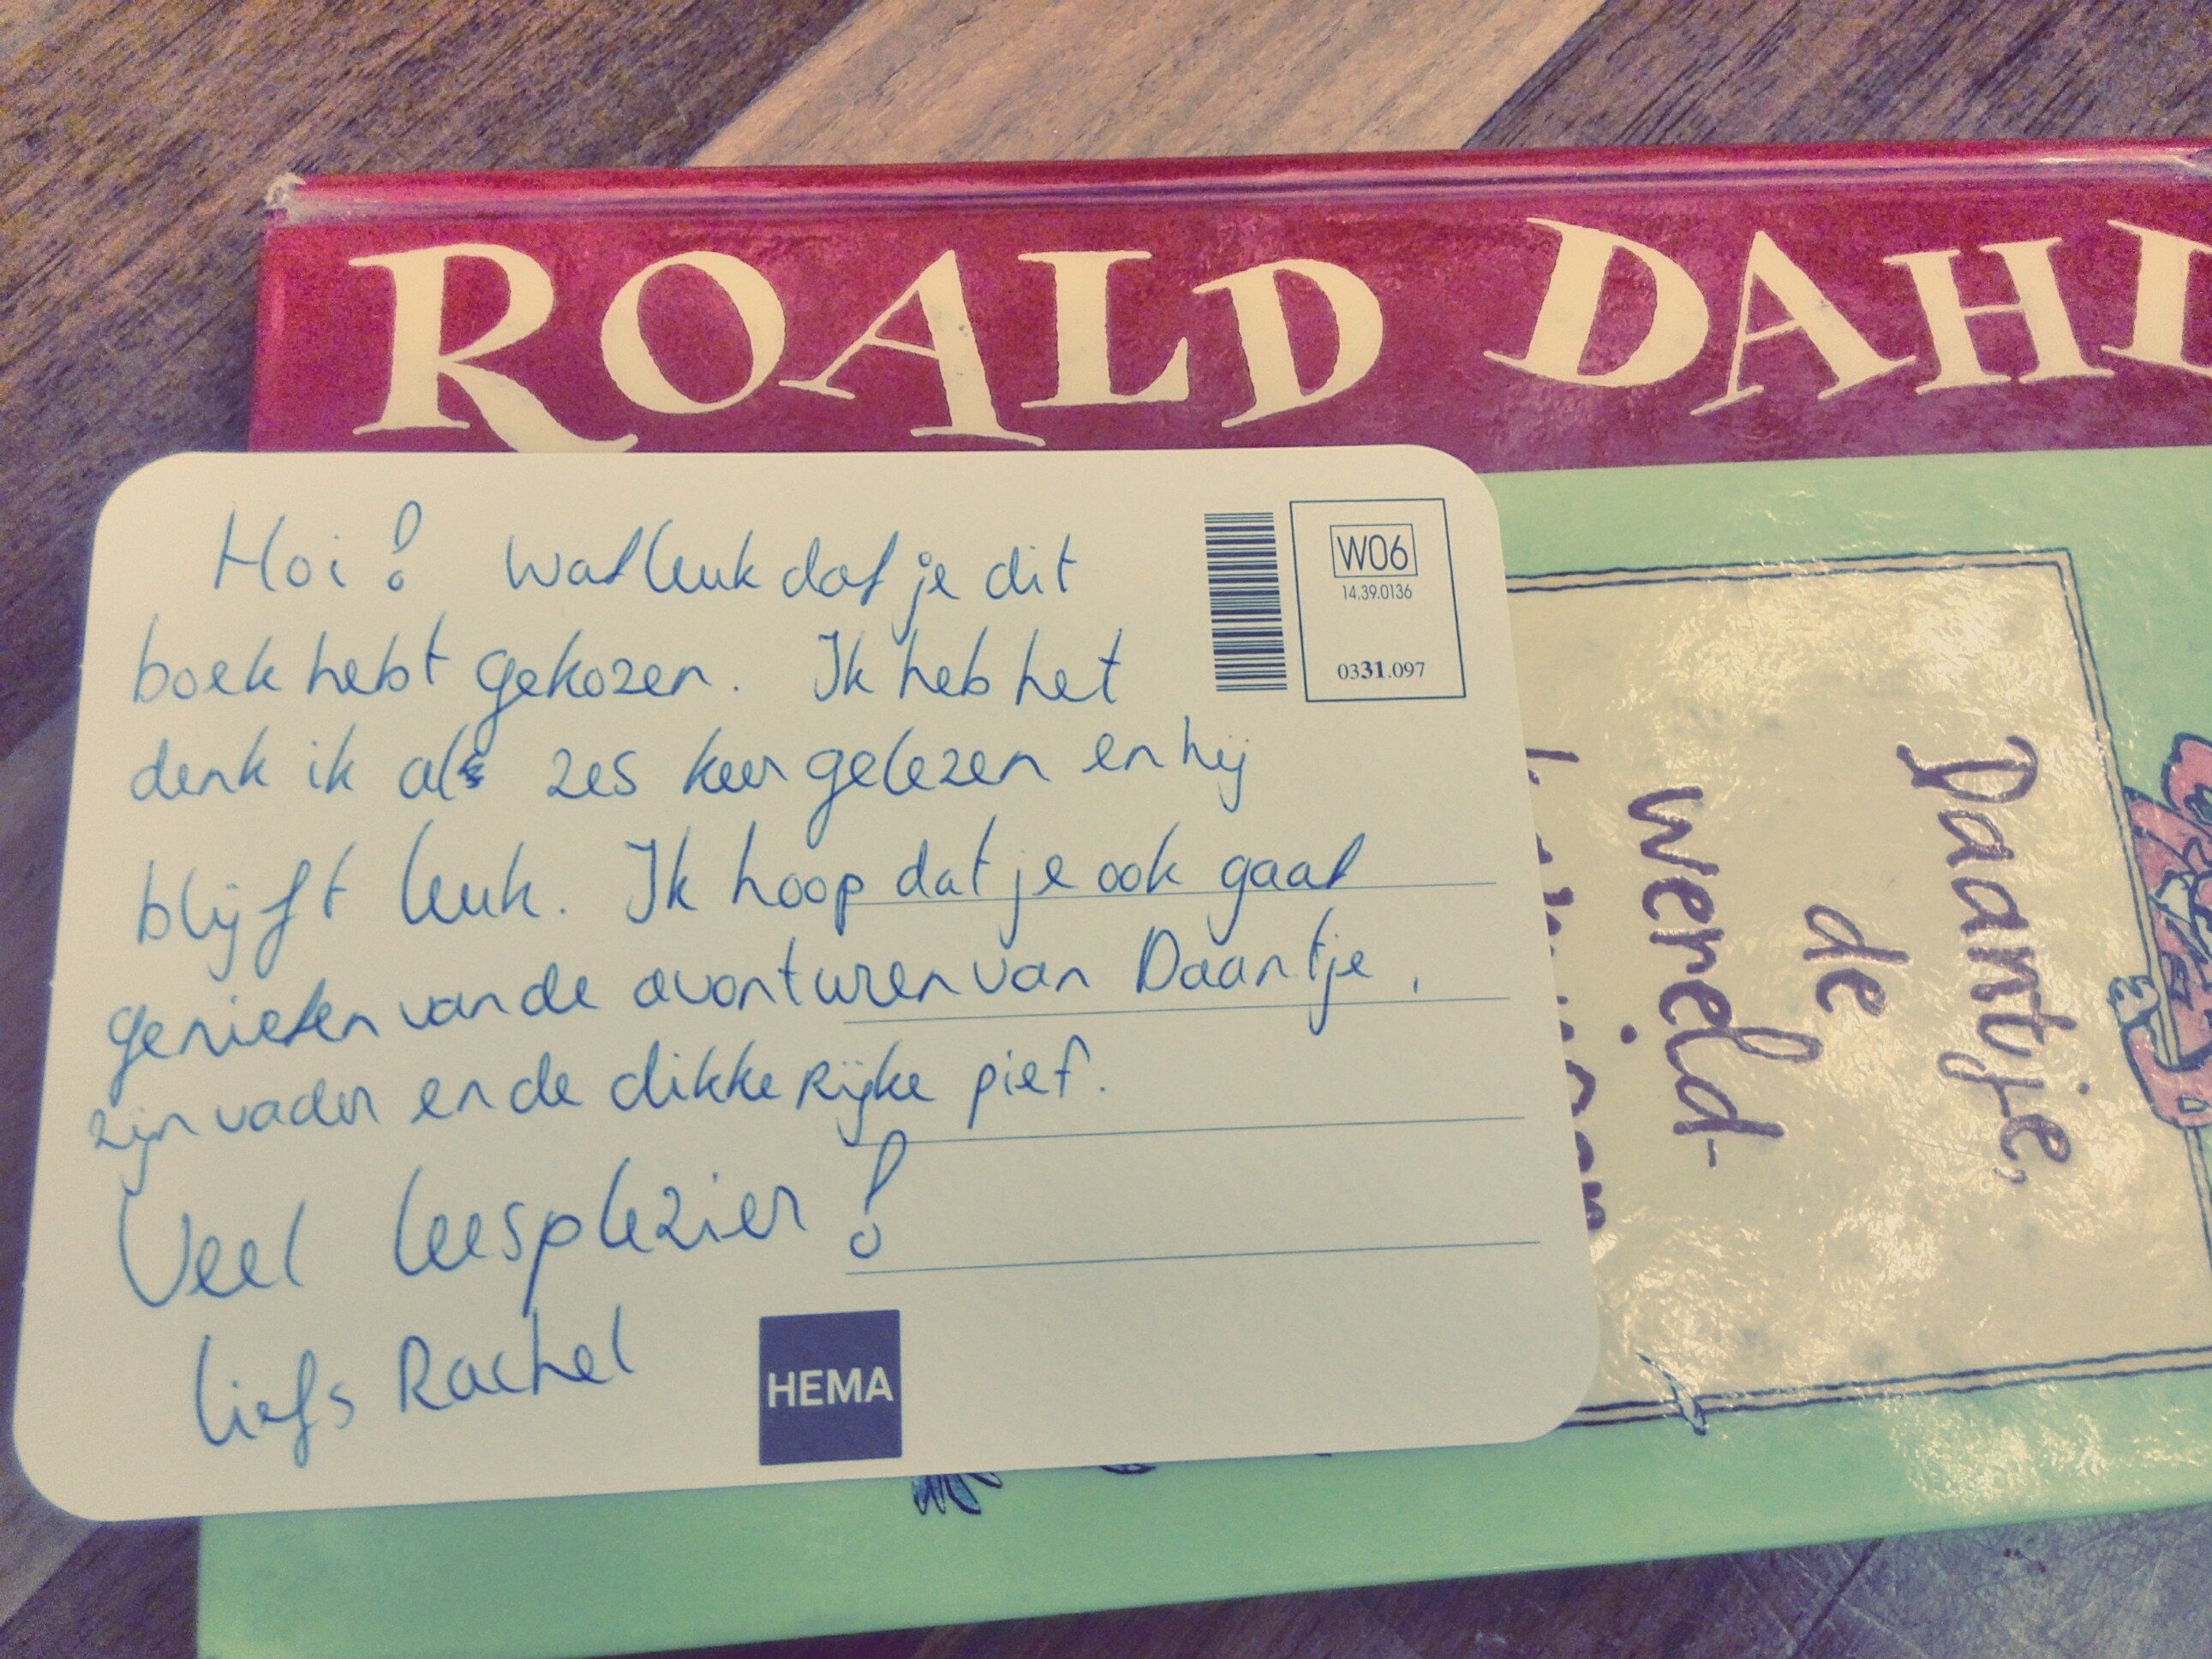 ROALD DAHL
Hoi! Wat leuk dat je dit
boek hebt gekozen. Ik heb het
denk ik als zes keer gelezen en hij
blijft leuk. Ik hoop dat je ook gaat
genieten van de avonturen van Daantje,
zijn vader en de dikke rijke pief.
Veel leesplezier!
liefs Rachel
W06
14.39.0136
0331.097
HEMA
Daantje,
de
wereld-